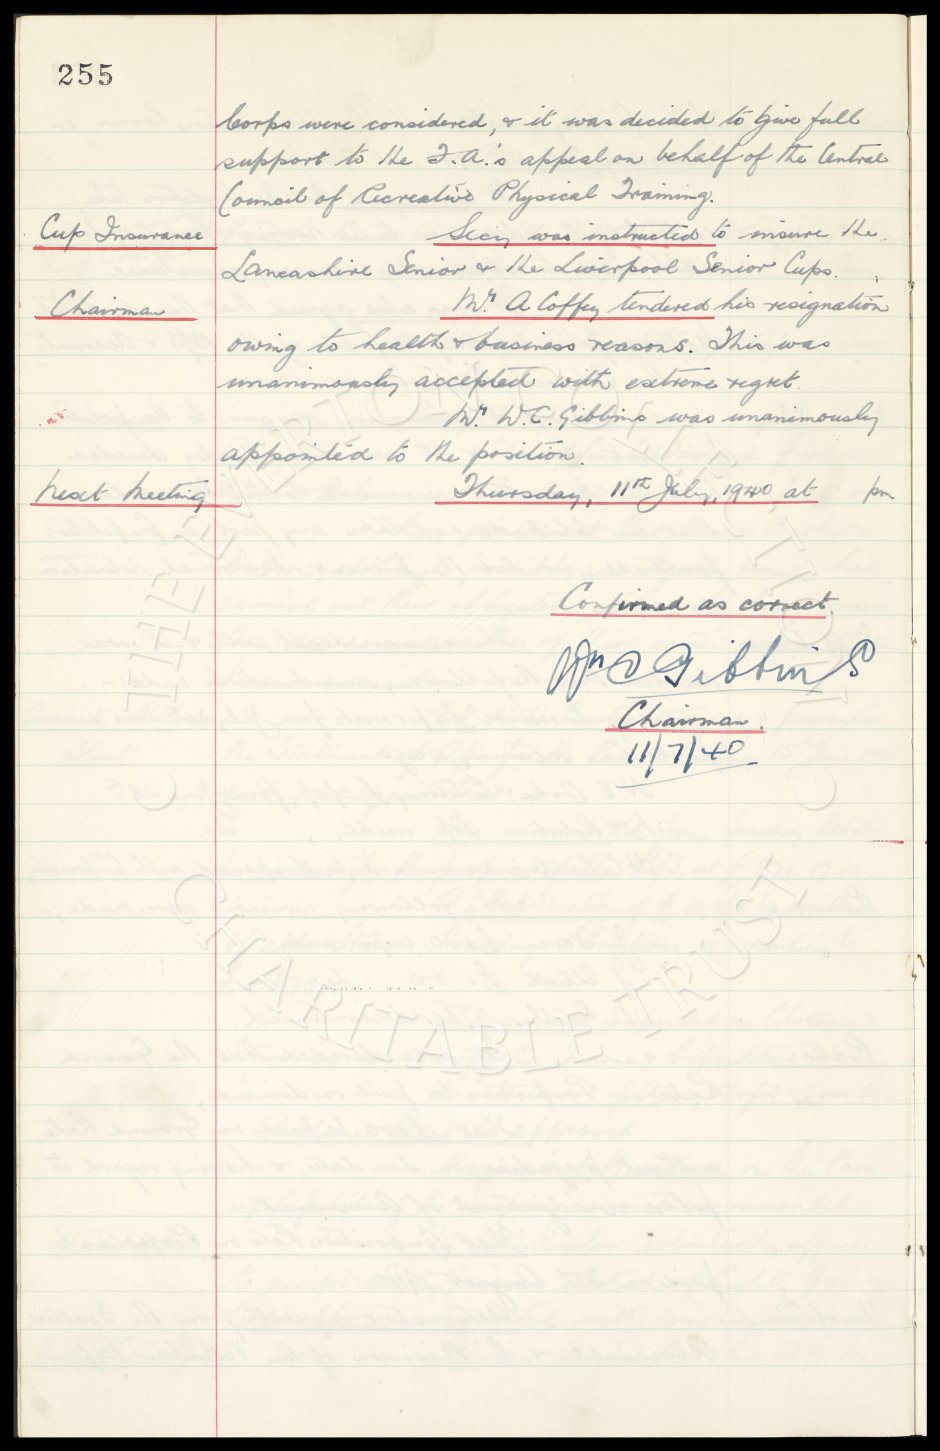 255
Corps were considered, & it was decided to give full
support to the F.A.'s appeal on behalf of the Central
Council of Recreative Physical Training.
Cup Insurance Secy was instructed to insure the
Lancashire Senior & the Liverpool Senior Cups.
Chairman Mr. A Coffey tendered his resignation
owing to health & business reasons. This was
unanimously accepted with extreme regret.
Mr. W.C. Gibbins was unanimously
appointed to the position.
Next Meeting Thursday, 11th July, 1940, at pm
Confirmed as correct.
Wm C Gibbins
Chairman.
11/7/40
THE EVERTON COLLECTION
CHARITABLE TRUST